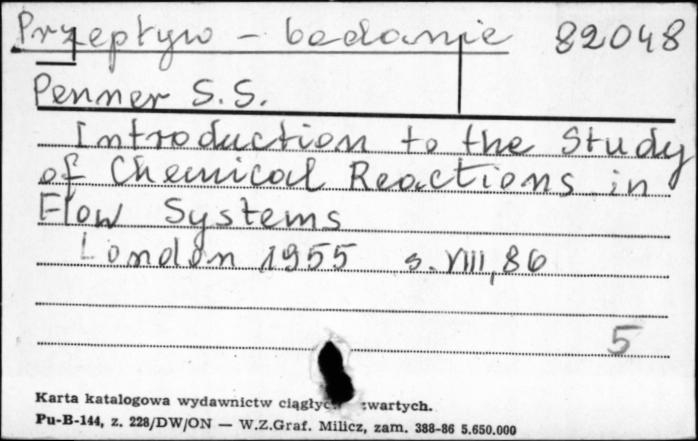 Przepływ - badanie 82048
Penner S.S.
Introduction to the Study
of Chemical Reactions in
Flow Systems
London 1955 s. VIII, 86
5
Karta katalogowa wydawnictw zwartych.
Pu-B-144, z. 228/DW/ON — W.Z.Graf. Milicz, zam. 388-86 5.650.000